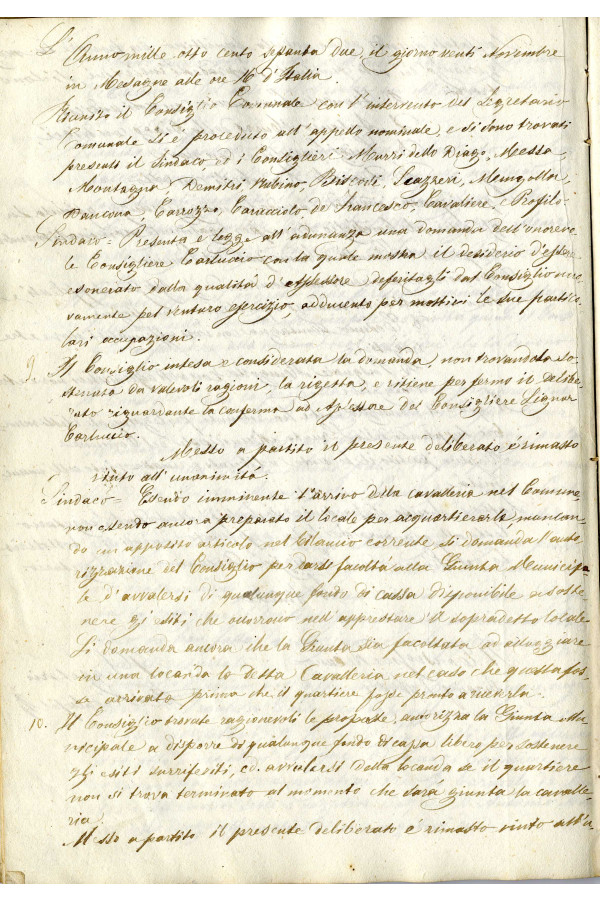 L'Anno mille otto cento settanta due il giorno venti Novembre
in Mesagne alle ore 16 d'Italia.
Riunito il Consiglio Comunale con l'intervento del Segretario
Comunale si è proceduto all'appello nominale, e si sono trovati
presenti il Sindaco ed i Consiglieri Murri dello Diago, Messa
Montagna, Demitri, Rubino, Briscoli, Scazzeri, Mungolla,
Dancona, Carrozzo, Caracciolo, de Francesco, Cavaliere, e Profilo
Sindaco = Presenta e legge all'adunanza una domanda dell'onorevo-
le Consigliere Carluccio con la quale mostra il desiderio d'essere
esonerato dalla qualità d'Assessore deferitagli dal Consiglio nuo-
vamente pel venturo esercizio, adducento per mottivi le sue partico-
lari occupazioni.
9. Il Consiglio intesa e considerata la domanda, non trovandola so-
stenuta da valevoli ragioni, la rigetta, e ritiene per fermo il delibe-
rato riguardante la conferma ad Assessore del Consigliere Signor
Carluccio.
Messo a partito il presente deliberato è rimasto
vinto all'unanimità.
Sindaco = Essendo imminente l'arrivo della cavalleria nel Comune,
non essendo ancora preparato il locale per acquartierarla, mancan-
do un apposito articolo nel bilancio corrente, si domanda l'auto-
rizzazione del Consiglio per darsi facoltà alla Giunta Municipa-
le d'avvalersi di qualunque fondo di cassa disponibile a soste-
nere gi esiti che occorrono nell'apprestare il sopradetto locale
Si domanda ancora che la Giunta sia facoltata ad alloggiare
in una locanda la detta Cavalleria nel caso che questa fos-
se arrivata prima che il quartiere fosse pronto a riceverla.
10. Il Consiglio trovate ragionevoli le proposte, autorizza la Giunta Mu-
nicipale a disporre di qualunque fondo di cassa libero per sostenere
gli esiti surriferiti, ed avvalersi della locanda se il quartiere
non si trova terminato al momento che sara giunta la cavalle-
ria.
Messo a partito il presente deliberato é rimasto vinto all'u-